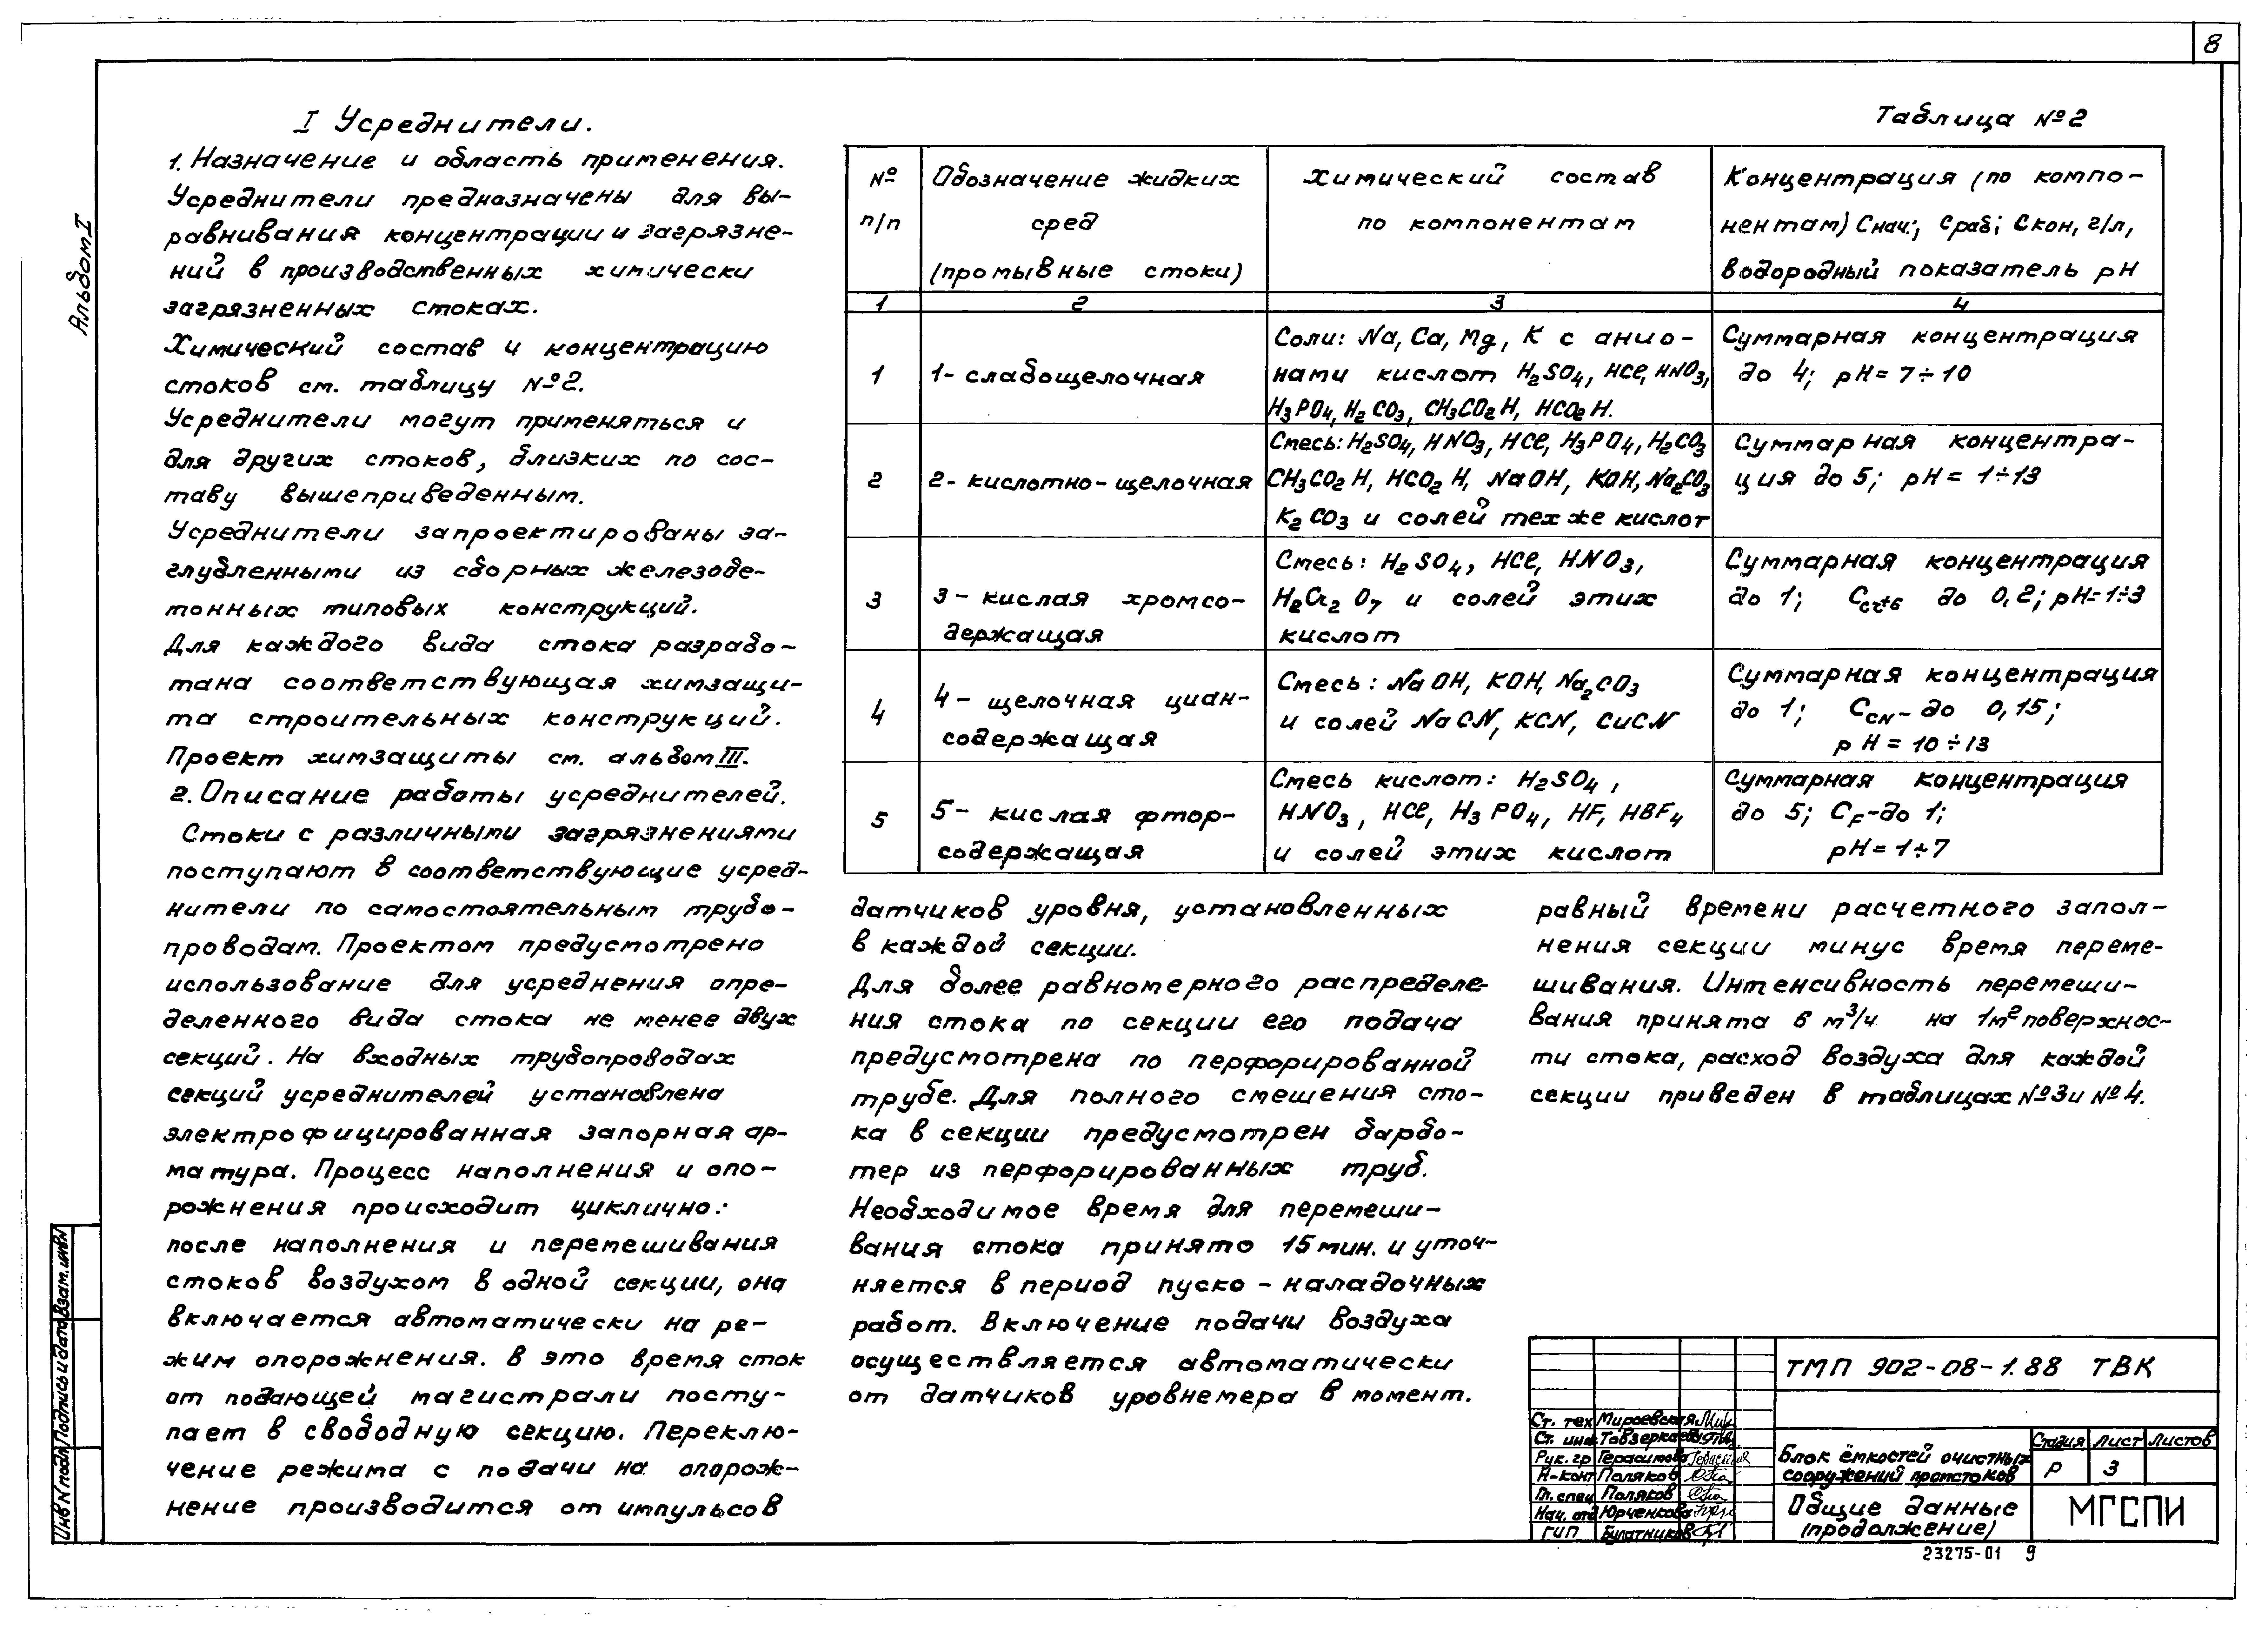 8
Альбом I
I Усреднители.
1. Назначение и область применения.
Усреднители предназначены для вы-
равнивания концентрации и загрязне-
ний в производственных химически
загрязненных стоках.
Химический состав и концентрацию
стоков см. таблицу №2.
Усреднители могут применяться и
для других стоков, близких по сос-
таву вышеприведенным.
Усреднители запроектированы за-
глубленными из сборных железобе-
тонных типовых конструкций.
Для каждого вида стока разрабо-
тана соответствующая химзащи-
та строительных конструкций.
Проект химзащиты см. альбом III.
2. Описание работы усреднителей.
Стоки с различными загрязнениями
поступают в соответствующие усред-
нители по самостоятельным трубо-
проводам. Проектом предусмотрено
использование для усреднения опре-
деленного вида стока не менее двух
секций. На входных трубопроводах
секций усреднителей установлена
электрофицированная запорная ар-
матура. Процесс наполнения и опо-
рожнения происходит циклично:
после наполнения и перемешивания
стоков воздухом в одной секции, она
включается автоматически на ре-
жим опорожнения. В это время сток
от подающей магистрали посту-
пает в свободную секцию. Переклю-
чение режима с подачи на опорож-
нение производится от импульсов
Таблица №2
№ п/п
Обозначение жидких
сред
(промывные стоки)
Химический состав
по компонентам
Концентрация (по компо-
нентам) Cнач.; Cраб; Cкон, г/л,
водородный показатель pH
1 2 3 4
1
1- слабощелочная
Соли: Na, Ca, Mg, K с анио-
нами кислот H2SO4, HCl, HNO3,
H3PO4, H2CO3, CH3CO2H, HCO2H.
Суммарная концентрация
до 4; pH= 7÷10
2
2- кислотно-щелочная
Смесь: H2SO4, HNO3, HCl, H3PO4, H2CO3
CH3CO2H, HCO2H, NaOH, KOH, Na2CO3
K2CO3 и солей тех же кислот
Суммарная концентра-
ция до 5; pH= 1÷13
3
3- кислая хромсо-
держащая
Смесь: H2SO4, HCl, HNO3,
H2Cr2O7 и солей этих
кислот
Суммарная концентрация
до 1; Ccr+6 до 0,2; pH=1÷3
4
4- щелочная циан-
содержащая
Смесь: NaOH, KOH, Na2CO3
и солей NaCN, KCN, CuCN
Суммарная концентрация
до 1; CCN- до 0,15;
pH=10÷13
5
5- кислая фтор-
содержащая
Смесь кислот: H2SO4,
HNO3, HCl, H3PO4, HF, HBF4
и солей этих кислот
Суммарная концентрация
до 5; CF-до 1;
pH=1÷7
датчиков уровня, установленных
в каждой секции.
Для более равномерного распределе-
ния стока по секции его подача
предусмотрена по перфорированной
трубе. Для полного смешения сто-
ка в секции предусмотрен барбо-
тер из перфорированных труб.
Необходимое время для перемеши-
вания стока принято 15 мин. и уточ-
няется в период пуско-наладочных
работ. Включение подачи воздуха
осуществляется автоматически
от датчиков уровнемера в момент.
равный времени расчетного запол-
нения секции минус время переме-
шивания. Интенсивность перемеши-
вания принята 6 м3/ч на 1м2 поверхнос-
ти стока, расход воздуха для каждой
секции приведен в таблицах №3 и №4.
Инв N подл. Подпись и дата Взам. инв N
ТМП 902-08-1.88 ТВК
Ст. тех Мироевская
Ст. инж Товзеркаева
Рук. гр Герасимова
Н-конт Поляков
Гл. спец Поляков
Нач. отд Юрченкова
ГИП Булатников
Блок ёмкостей очистных
сооружений промстоков
Стадия Лист Листов
Р 3
Общие данные
(продолжение)
МГСПИ
23275-01 9